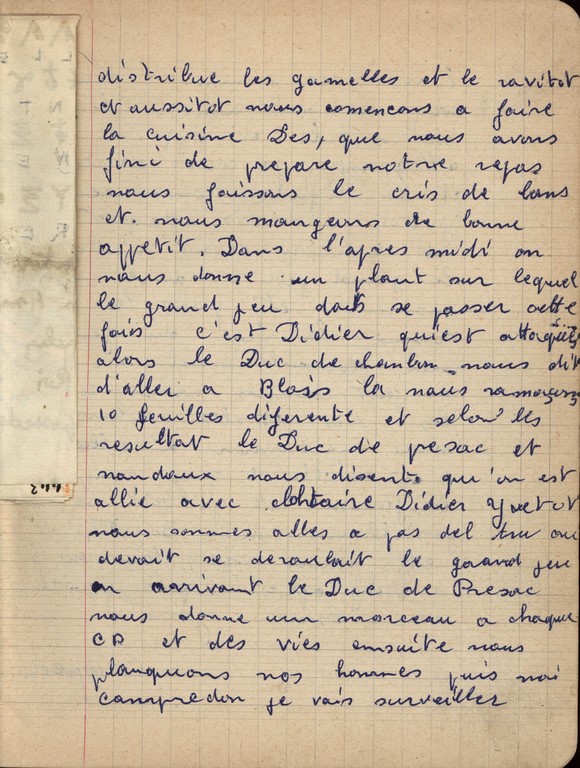 distribue les gamelles et le ravitot
et aussitot nous comencons a faire
la cuisine Des, que nous avons
fini de prepare notre repas
nous faissons le cris de bans
et nous mangeons de bonne
appetit. Dans l'apres midi on
nous donne un plant sur lequel
le grand jeu doit se passer cette
fois c'est Didier qui est attaquer
alors le Duc de chambon nous dit
d'aller a Blois la nous ramassons
10 feuilles diferente et selon les
resultat le Duc de pesac et
nandaux nous disent qu'on est
allie avec Didier Yvetot
nous sommes alles a pas del ou
devait se deroulait le grand jeu
en arrivant le Duc de Presac
nous donne un morceau a chaque
CP et des vies ensuite nous
planquons nos hommes puis moi
campredon je vais surveiller